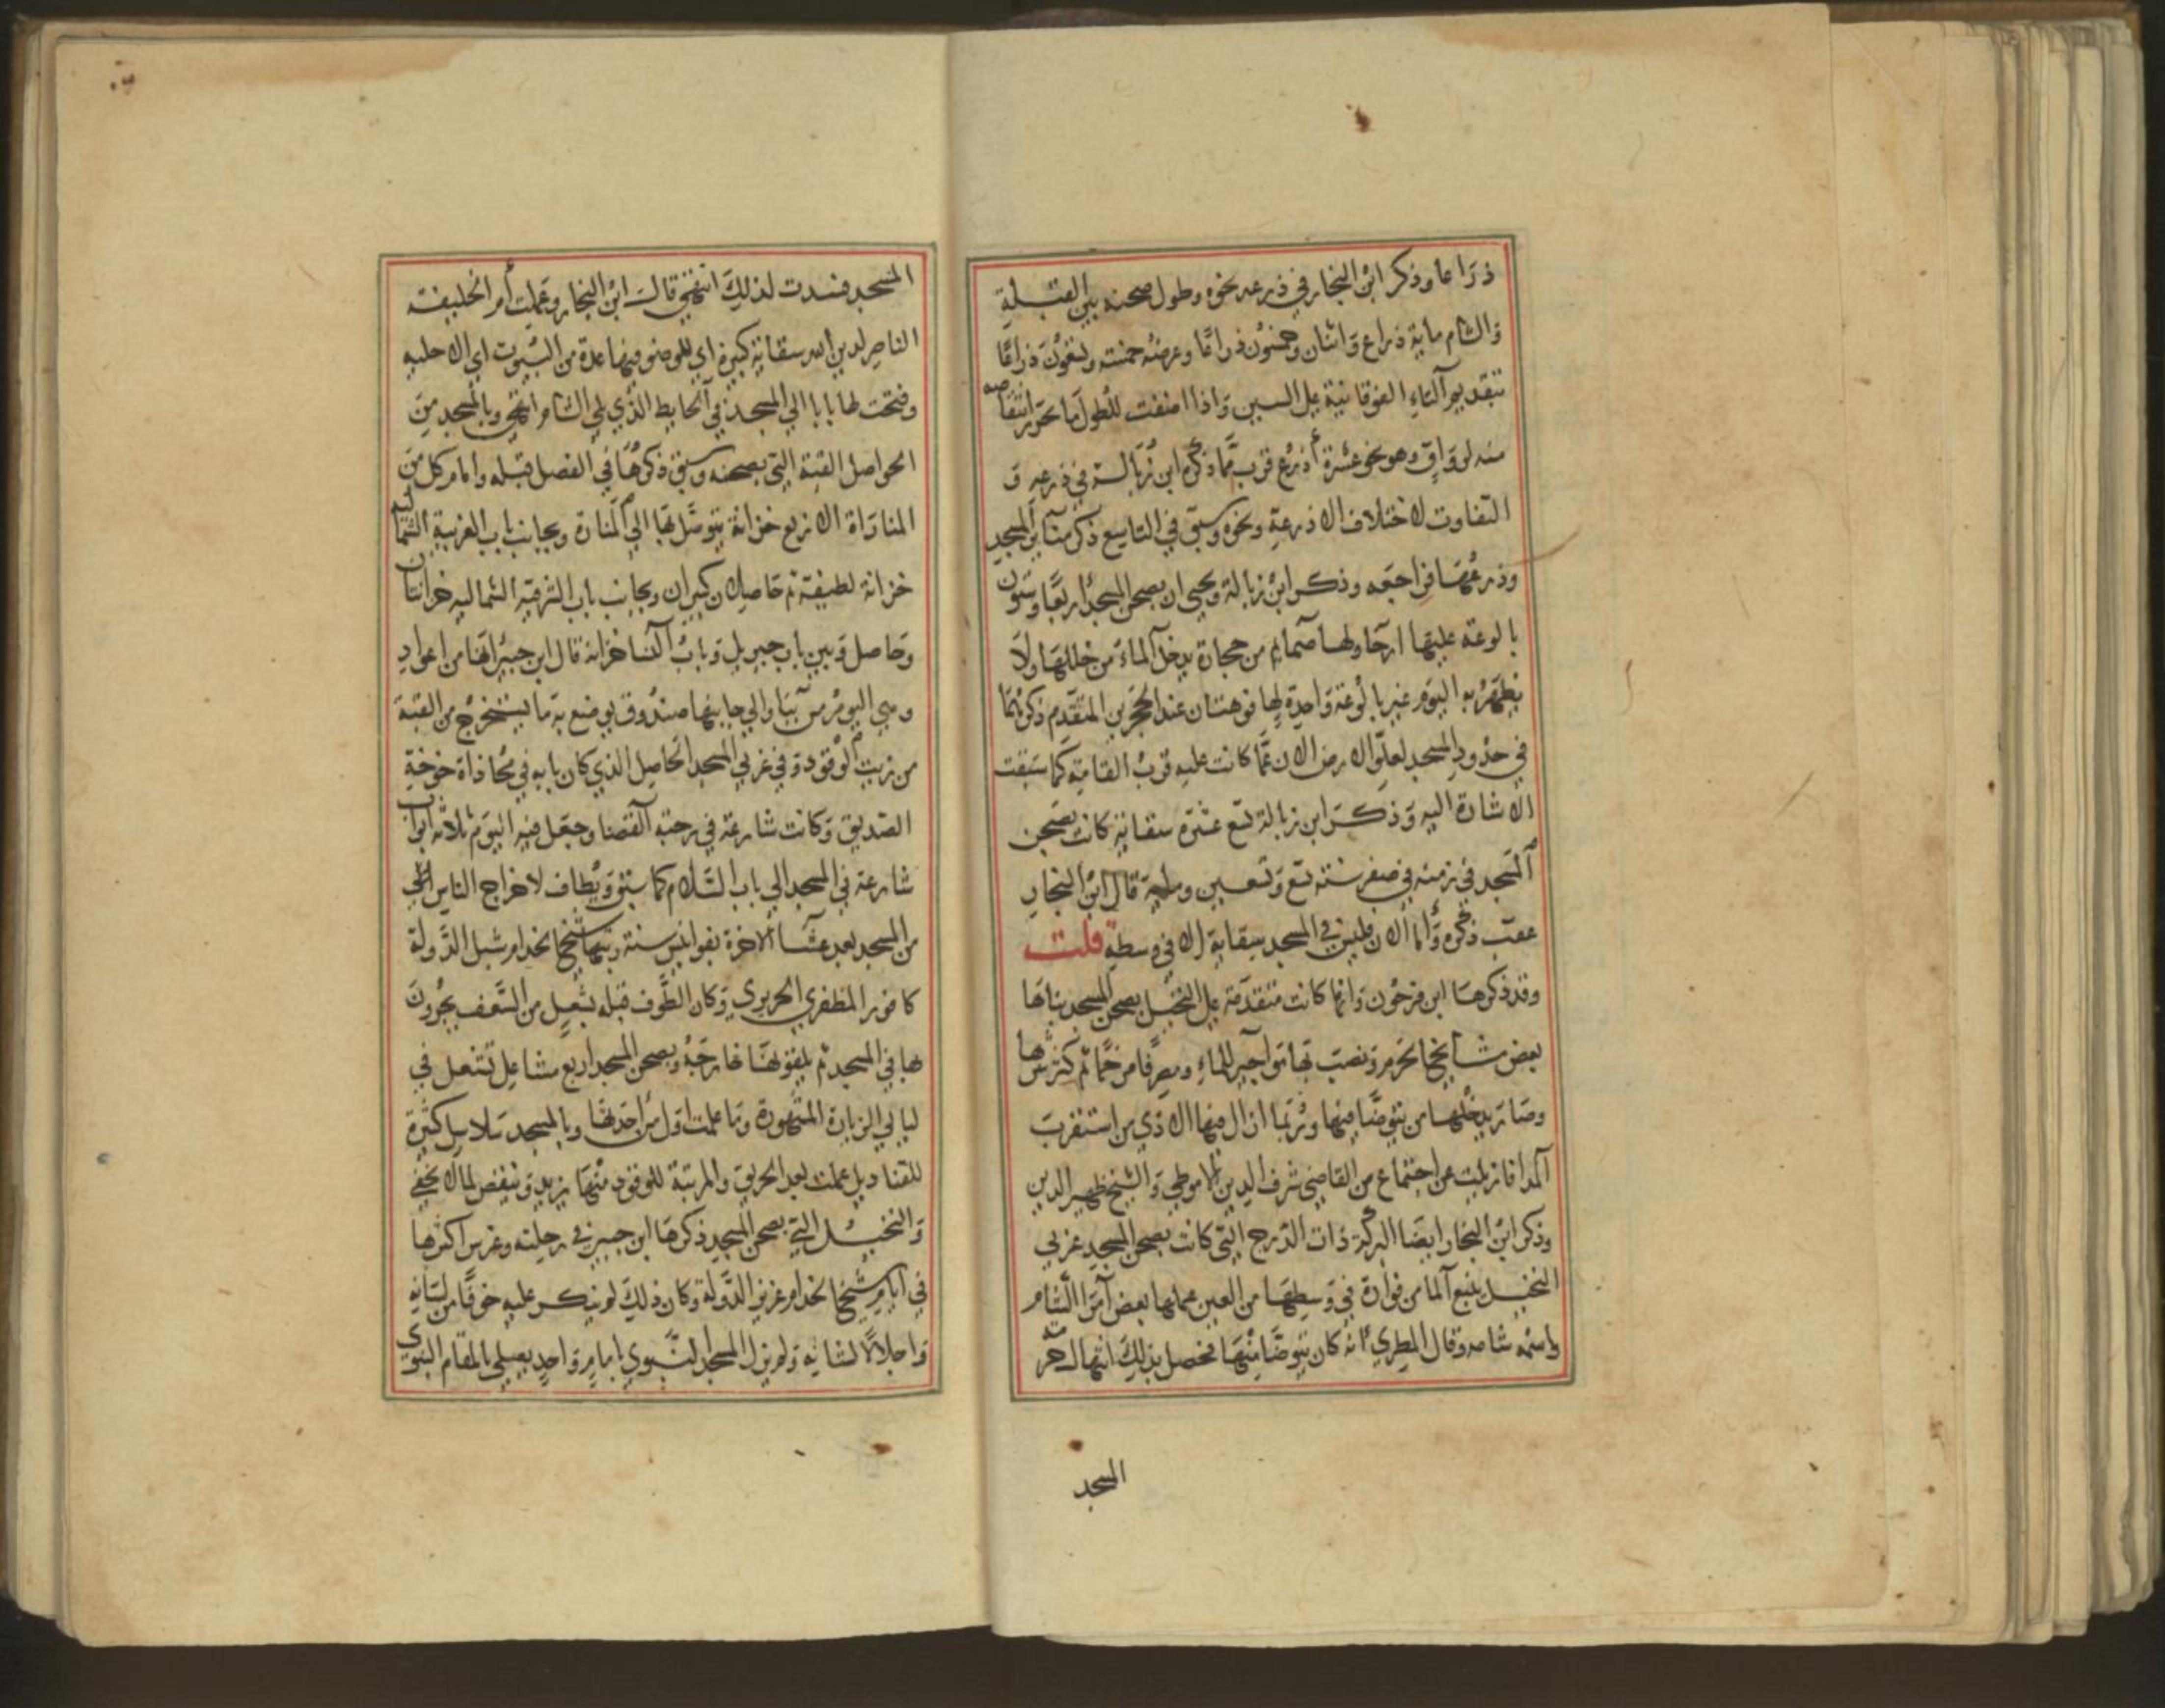 ذراعا وذكر ابن النجار في ذرعه نحوه وطول صحنه بين القبلة
والشام ماية ذراع واثنان وخمسون ذراعًا وعرضه خمسة وتسعون ذراعًا
بتقديم التاء الفوقانية على السين واذا اضفت للطول ما تحرر انتقاصه
منه لو وافق وهو نحو عشرة أذرع قرب مما ذكره ابن زبالة في ذرعه و
التفاوت لاختلاف الاذرعة ونحوه وسبق في التاسع ذكر منابر المسجد
وذرعها فراجعه وذكر ابن زبالة ويحيى ان بصحن المسجد أربعًا وستون
بالوعة عليها ارحا ولها صمايم من حجارة يدخل الماء من خللها ولا
يظهر به اليوم غير بالوعة واحدة لها فوهتان عند الحجرين المتقدم ذكرهما
في حدود المسجد لعلو الارض الان عما كانت عليه قرب القامة كما سبقت
الاشارة اليه وذكر ابن زبالة تسع عشرة سقاية كانت بصحن
المسجد في زمنه في صفر سنة تسع وتسعين وماية قال ابن النجار
عقب ذكره وأما الان فليس في المسجد سقاية الا في وسطه قلت
وقد ذكرها ابن فرحون وانها كانت متقدمة على النخيل بصحن المسجد بناها
بعض مشايخ الحرم ونصب بها مواجير للماء وصرفا مرخما ثم كثر شرها
وصار يدخلها من يتوضأ فيها وربما ازال فيها الاذي من استقرب
المدا فازيلت عن اجتماع من القاضي شرف الدين الاموطي والشيخ ظهير الدين
وذكر ابن النجار ايضا البركة ذات الدرج التي كانت بصحن المسجد غربي
النخيل ينبع الما من فوارة في وسطها من العين عملها بعض أمرا الشام
واسمه شامه وقال المطري أنه كان يتوضأ منها فحصل بذلك انتهاك حرمة
المسجد
المسجد فسدت لذلك انتهى قال ابن النجار وعملت أم الخليفة
الناصر لدين الله سقاية كبيرة اي للوضو فيها عدة من البيوت اي الاخلية
وفتحت لها بابا الي المسجد في الحايط الذي يلي الشام انتهى وبالمسجد من
الحواصل القبة التي بصحنه وسبق ذكرها في الفصل قبله وامام كل من
المنارات الاربع خزانة يتوصل بها الي المنارة وبجانب باب الغربية الشمالية
خزانة لطيفة ثم حاصلان كبيران وبجانب باب الشرقية الشمالية خزانتان
وحاصل وبين باب جبريل وباب النسا خزانة قال ابن جبير انها من اعواد
وهي اليوم من بنا والي جانبها صندوق يوضع به ما يستخرج من القبة
من زيت الوقود وفي غربي المسجد الحاصل الذي كان بابه في محاذاة خوخة
الصديق وكانت شارعة في رحبة القضا وجعل فيه اليوم ثلاثة ابواب
شارعة في المسجد الي باب السلام كما سبق ويطاف لاخراج الناس
من المسجد بعد عشاء الاخرة بفوانيس ستة رتبها شيخ الخدام شبل الدولة
كافور المظفري الحريري وكان الطوف قبله بشعل من السعف يجرون
بها في المسجد ثم يلقونها خارجه وبصحن المسجد اربع مشاعل تشتعل في
ليالي الزيارة المشهورة وما علمت اول من احدثها وبالمسجد سلاسل كثيرة
للقناديل عملت بعد الحريق والمرتبة للوقود منها يزيد وينقص لما لا يخفى
والنخيل التي بصحن المسجد ذكرها ابن جبير في رحلته وغرس اكثرها
في ايام شيخ الخدام عزيز الدولة وكان ذلك لم ينكر عليه خوفًا من لسانه
واجلالا لشانه ولم يزل المسجد النبوي بامام واحد يصلي بالمقام النبوي